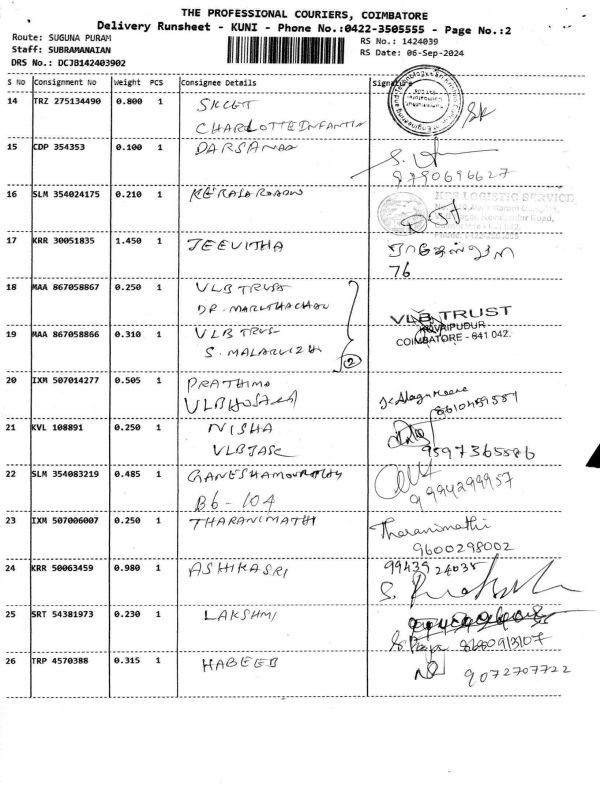 THE PROFESSIONAL COURIERS, COIMBATORE
Delivery Runsheet - KUNI - Phone No.:0422-3505555 - Page No.:2
Route: SUGUNA PURAM
RS No.: 1424039
Staff: SUBRAMANAIAN
RS Date: 06-Sep-2024
DRS No.: DCJB142403902
S No Consignment No Weight PCS Consignee Details Signature
14 TRZ 275134490 0.800 1 SKCET
CHARLOTTE INFANTIA
15 CDP 354353 0.100 1 DARSANAA
9790696627
16 SLM 354024175 0.210 1
KPS LOGISTIC SERVICE
17 KRR 30051835 1.450 1 JEEVITHA
76
18 MAA 867058867 0.250 1 VLB TRUST
DR. MARUTHACHAL
VLB TRUST
KOVAIPUDUR
COIMBATORE - 641 042.
19 MAA 867058866 0.310 1 VLB TRUS
S. MALARVIZHI
2
20 IXM 507014277 0.505 1 PRATHIMA
VLB HOSTEL
21 KVL 108891 0.250 1 NISHA
VLBJASC
9597365586
22 SLM 354083219 0.485 1 GANESHAMOORTHY
9994299957
B6 - 104
23 IXM 507006007 0.250 1 THARANIMATHI
Tharanimathi
9600298002
24 KRR 50063459 0.980 1 ASHIKASRI
99439 24035
25 SRT 54381973 0.230 1 LAKSHMI
8680913107
26 TRP 4570388 0.315 1 HABEEB
9072707722